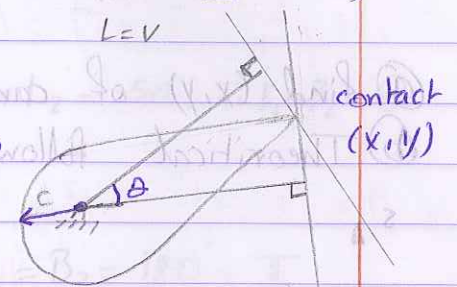 L=V
contact
(x,y)
C
θ